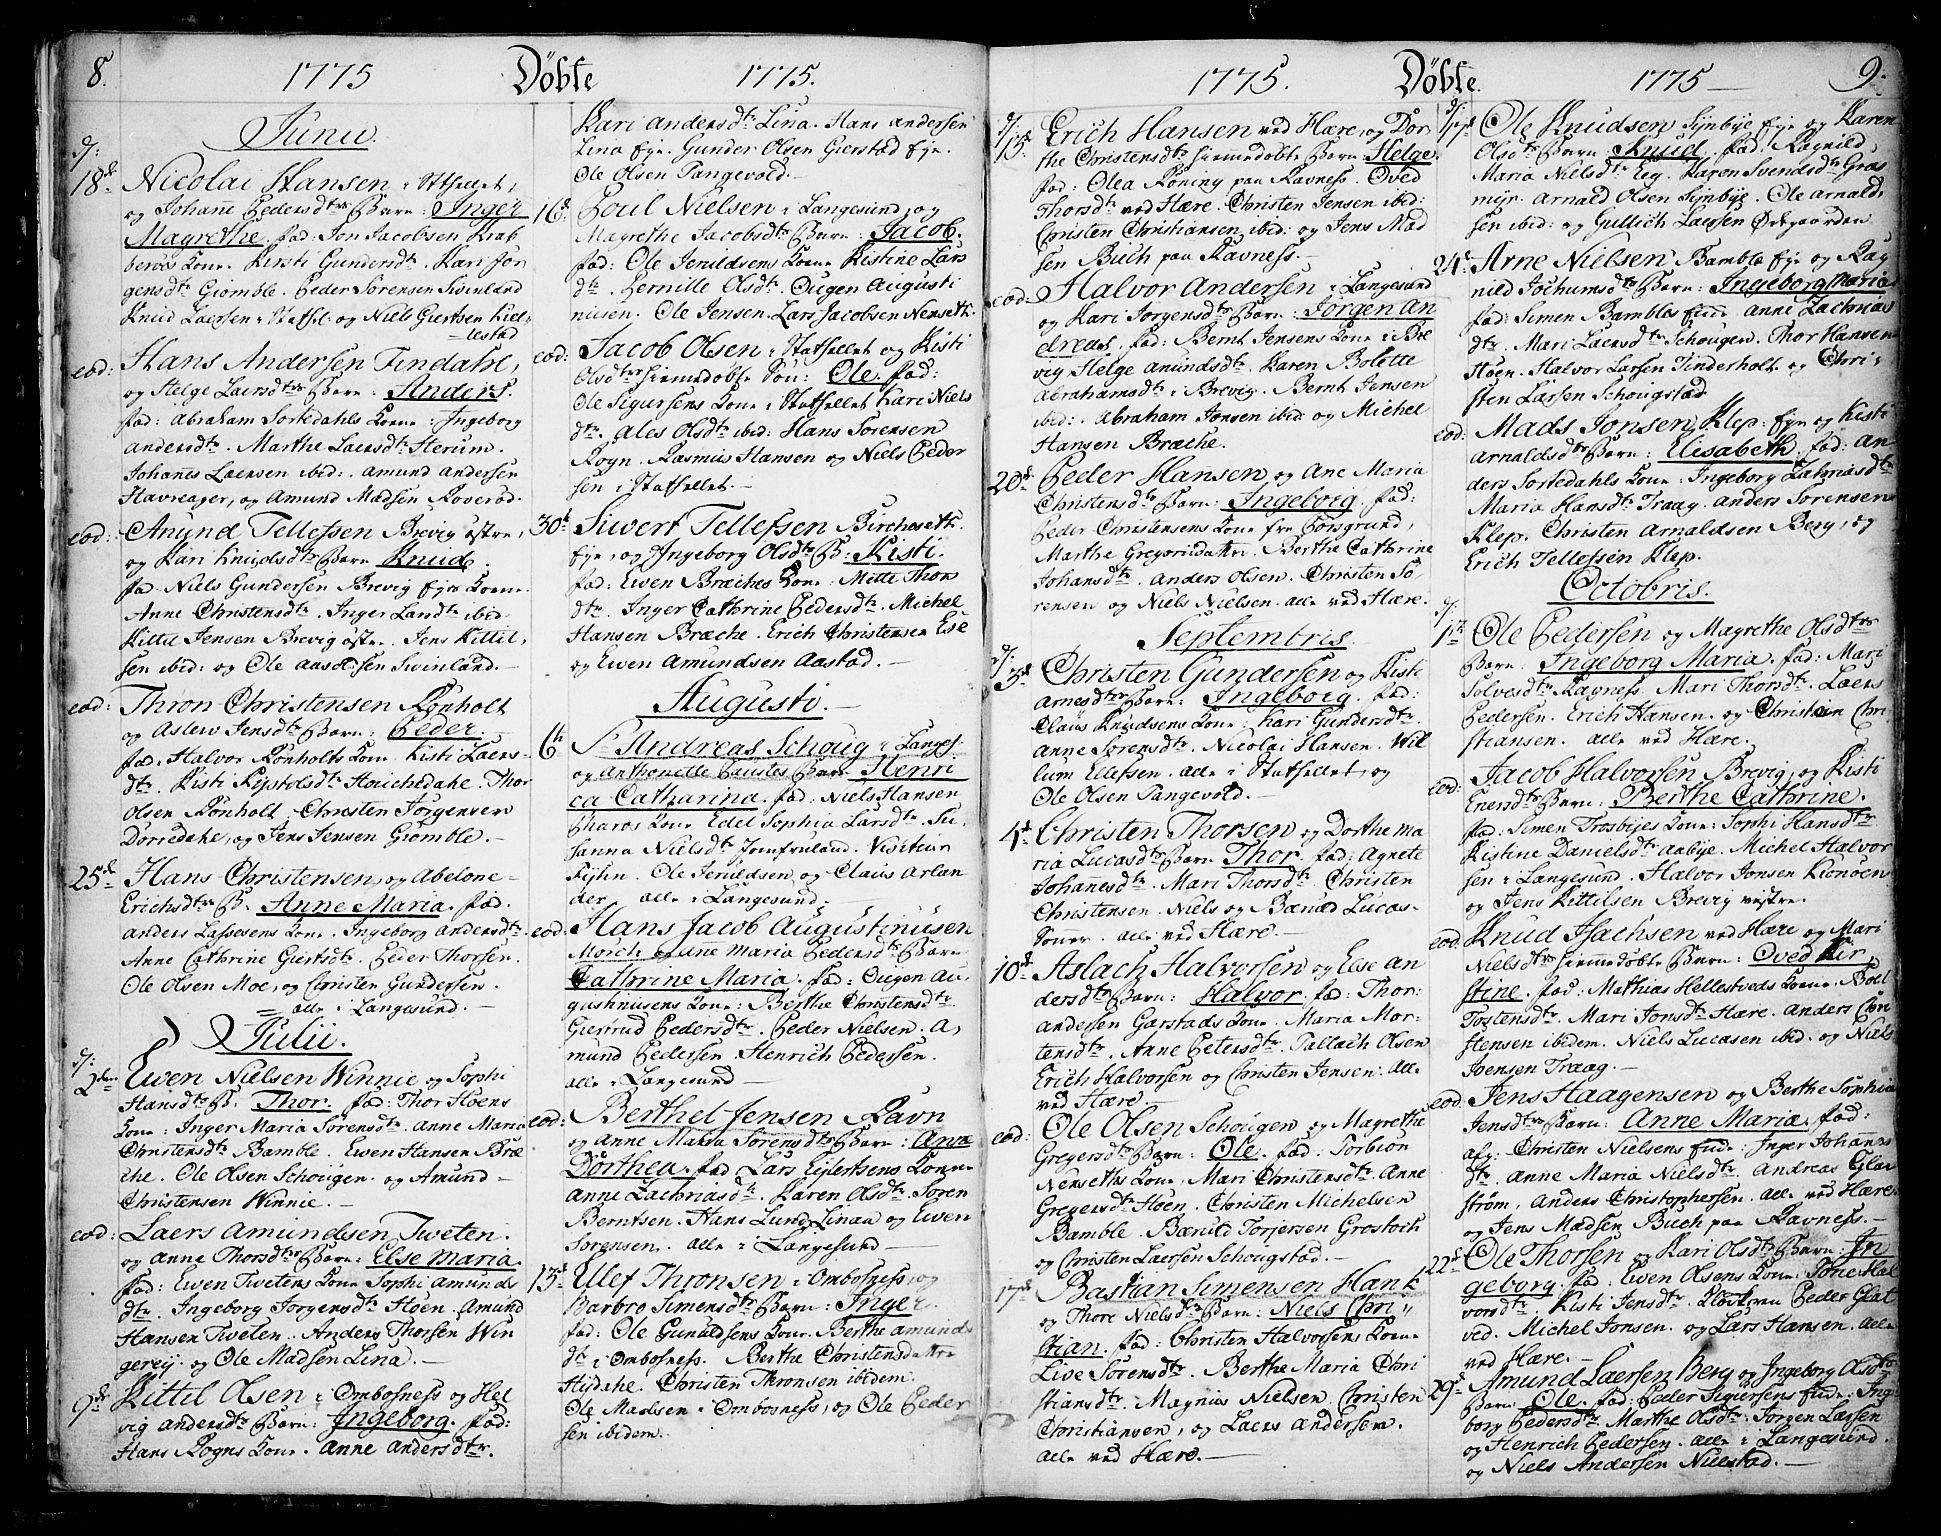 8. 1775 Döbte 1775.
Junii.
d:
18de Nicolai Hansen i Statsellet,
og Johañe Pedersdtr Barn: Inger
Magrethe. fad: Jon Jacobsen Krab
beröes Kone. Kirsti Gundersdtr. Kari Jör
gensdtr Giomble. Peder Sörensen Svinland
Knud Laersen i Statsel: og Niels Giertsen Kiel
lestad
eod: Hans Andersen Findahl,
og Helge Laersdtr Barn: Anders.
fad: Abraham Sortedahls Kone: Ingeborg
andersdtr. Marthe Laersdtr Herum.
Johanes Laersen ibid: Amund andersen
Havreager, og Amund Madsen Roveröd.
eod: Amund Tellefsen Brevig östre,
og Kari Knudsdtr Barn Knud.
fad Niels Gundersen Brevig Eye Kone.
Anne Christensdtr. Inger Landtr ibid.
Kittil Jensen Brevig östre. Jens Kittil,
sen ibid: og Ole Aasolsen Svinland.
eod: Thron Christensen Rönholt
og Aslew Jensdtr Barn: Peder.
fad: Halvor Rönholts Kone Kisti Laers-
dtr. Kisti Kystolsdtr Houchedahl. Thor
Olsen Rönholt, Christen Jörgensen
Dörredahl, og Jens Jensen Giomble.
25de Hans Christensen, og Abelone
Erichsdtr B. Anne Maria. fad:
Anders Lassesens Kone. Ingeborg andersdtr.
Anne Cathrine Giertsdtr. Peder Thorsen.
Ole Olsen Moe, og Christen Gundersen.
alle i Langesund.
Julii.
d:
2den Ewen Nielsen Winnie og Sophi
Hansdtr B: Thor. fad: Thor Höens
Kone: Inger Maria Sörensdtr. Anne Maria
Christensdtr Bamble. Ewen Hansen Bræ
che. Ole Olsen Schougen. og Amund
Christensen Winnie.
eod: Laers Amundsen Tveten.
og Anne Thorsdtr Barn: Else Maria.
fad: Ewen Tvetens Kone Sophi Amunds
dtr. Ingeborg Jörgensdtr Höen. Amund
Hansen Tveten. Anders Thorsen Win
gerey. og Ole Madsen Lina.
9de Kittil Olsen i Ombosness og Hel
vig andersdtr Barn: Ingeborg. fad:
Hans Rogns Kone. Anne Andersdtr.
Kari Andersdtr Lina. Hans Andersen
Lina Eye. Gunder Olsen Gierstad Eye.
Ole Olsen Tangevold.
16d. Poul Nielsen i Langesund, og
Magrethe Jacobsdtr Barn: Jacob.
fad: Ole Jenildsens Kone Kistine Lars
dtr. Pernille Olsdtr. Ougen Augusti
nusen. Ole Jensen. Lars Jacobsen Nenseth.
eod: Jacob Olsen i Statsellet og Kisti
Olsdtr hiemmedöbte Sön: Ole. fad:
Ole Sigursens Kone i Statsellet Kari Niels
dtr. Ales Olsdtr ibid: Hans Sörensen
Rogn. Rasmus Hansen og Niels Peder
sen i Statsellet.
30d Siwert Tellefsen Bircheseth
Eye, og Ingeborg Olsdtr B: Kisti.
fad: Ewen Bræches Kone: Mitte Thor
dtr. Inger Cathrine Pedersdtr. Michel
Hansen Bræche. Erich Christensen Ese
og Ewen Amundsen Aastad.
Augusti.
6te Sr Andreas Schoug i Langes.
og Anthonette Faustes Barn Henri
ca Catharina. fad: Niels Hansen
Pharos Kone Edel Sophia Larsdtr. Su,
sanna Nielsdtr Jomfruland. Visiteur
Fejhn. Ole Jenildsen og Claus Arlan
der. alle i Langesund.
eod: Hans Jacob Augustinusen
Morch og Anne Maria Pedersdtr Barn
Cathrine Maria. fad: Ougen Au,
gustinusens Kone: Berthe Christensdtr
Giertrud Pedersdtr. Peder Nielsen. A,
mund Pedersen. Henrich Pedersen.
alle i Langesund
eod: Berthel Jensen Ravn
og Anne Maria Sörensdtr Barn: Anne
Dorthea. fad Lars Eylertsens Kone
Anne Zachriasdtr. Karen Olsdtr. Sören
Berntsen. Hans Lund Linaa og Ewen
Sörensen. alle i Langesund
13d. Ellef Thronsen i Ombosness, og
Barbro Simensdtr Barn: Inger.
fad: Ole Gunuldsens Kone Berthe Amunds
dtr i Ombosness. Berthe Christensdatter
Hydahl. Christen Thronsen ibidem.
Ole Madsen i Ombosness, og Ole Peder
sen ibidem.
1775. Döbte. 1775 9.
d/15. Erich Hansen ved Hære, og Dor
the Christensdtr hiemmedöbte Barn: Helge.
fad: Olea Röning paa Ravness. Oved
Thorsdtr ved Hære. Christen Jensen ibid:
Christen Christiansen ibid: og Jens Mad
sen Buch paa Ravness.
eod: Halvor Andersen i Langesund
og Kari Jörgensdtr Barn: Jörgen An
dreas. fad: Bernt Jensens Kone i Bre
vig Helge Anundsdtr. Karen Bolette
Abrahamsdtr i Brevig. Bernt Jensen
ibid: Abraham Jonsen ibid og Michel
Hansen Bræche.
20d Peder Hansen, og Ane Maria
Christensdtr Barn: Ingeborg. fad:
Peder Christensens Kone fra Porsgrund,
Marthe Gregoriidatter. Berthe Cathrine
Johansdtr. Anders Olsen. Christen Sö,
rensen og Niels Nielsen. alle ved Hære.
Septembris.
d/3d Christen Gundersen og Kisti
Arnesdtr Barn: Ingeborg. fad:
Claus Knudsens Kone: Kari Gundersdtr.
Anne Sörensdtr. Nicolai Hansen. Wil
lum Ellefsen. alle i Statsellet, og
Ole Olsen Tangevold.
4d Christen Thorsen og Dorthe Ma
ria Lucasdtr Barn Thor. fad: Agnete
Johannesdtr. Mari Thorsdtr. Christen
Christensen. Niels og Bærud Lucas-
Sönner. alle ved Hære.
10d Aslach Halvorsen og Else An
dersdtr Barn: Halvor. fad: Thor
Andersen Garstads Kone. Maria Mor-
tensdtr. Anne Petersdtr. Tallach Olsen
Erich Halvorsen og Christen Jensen. alle
ved Hære.
eod: Ole Olsen Schougen og Magrethe
Gregersdtr Barn: Ole. fad: Torbion
Nenseths Kone, Mari Christensdtr. Anne
Gregersdtr Höen. Christen Michelsen
Bamble. Bærud Torjersen Grostoch
og Christen Laersen Schougstad.
17de Bastian Simensen Hank
og Thore Nielsdtr Barn: Niels Chri
stian. fad: Christen Halvorsens Kone
Live Sörensdtr. Berthe Maria Chri
stiansdtr. Magnus Nielsen, Christen
Christiansen, og Laers Andersen.
alle ved Hære.
d/17d Ole Knudsen Synbye Eye og Karen
Olsdtr Barn: Knud. fad: Ragnild,
Maria Nielsdtr Eeg. Karen Svendsdtr Gras
myr. Arnold Olsen Synbye. Ole Arnold,
sen ibid: og Gullich Laersen Örtgaarden
24d. Arne Nielsen Bamble Eye og Rag
nild Jochumsdtr Barn: Ingeborg Maria
fad: Simen Bambles Enke Anne Zachrias
dtr. Mari Laersdtr Schougen. Thor Hansen
Höen. Halvor Larsen Tinderholt og Chri,
sten Larsen Schougstad
eod: Mads Jonsen Klep Eye og Kisti
Arnoldsdtr Barn: Elisabeth. fad: An
ders Sortedahls Kone Ingeborg Zakriasdtr
Maria Hansdtr Traag. Anders Sörensen
Klep. Christen Arnoldsen Berg, og
Erich Tellefsen Klep.
Octobris.
d:
1te Ole Pedersen og Magrethe Olsdtr
Barn: Ingeborg Maria. fad: Mari
Solvesdtr Ragness. Mari Thorsdtr. Laers
Pedersen. Erich Hansen. og Christen Chri
stiansen. alle ved Hære.
eod: Jacob Halvorsen Brevig, og Kisti
Enersdtr Barn: Berthe Cathrine.
fad: Simen Trosbyes Kone: Sophi Hansdtr
Kistine Danielsdtr Aabye. Michel Halvor
sen i Langesund. Halvor Jonsen Kionöen
og Jens Kittilsen Brevig vestre.
eod Knud Isachsen ved Hære og Mari
Nielsdtr hiemmedöbte Barn: Oved Kir,
stine. fad: Mathias Hellestveds Kone. Boel
Tostensdtr. Mari Jonsdtr Hære. Anders Chri
stensen ibidem. Niels Lucasen ibid. og Niels
Joensen Traag.
eod Jens Haagensen og Berthe Sophia
Jensdtr Barn: Anne Maria. fad:
afg. Christen Nielsens Enke: Inger Johannes
dtr. Anne Maria Nielsdtr. Andreas Glar
ström, Anders Christophersen. alle ved Hære.
og Jens Madsen Buch paa Ravness.
22d Ole Thorsen og Kari Olsdtr Barn: In
geborg. fad: Ewen Olsens Kone: Tone Hal
vorsdtr. Kisti Jensdtr. Peder Glat
ved. Michel Jonsen. og Lars Hansen. alle
ved Hære.
29d. Amund Laersen Berg og Ingeborg Olsdtr
Barn: Ole. fad: Peder Sigursens Enke: Inge
borg Pedersdtr Marthe Olsdtr. Jörgen Larsen
og Henrich Pedersen. alle i Langesund.
og Niels Andersen Nustad.